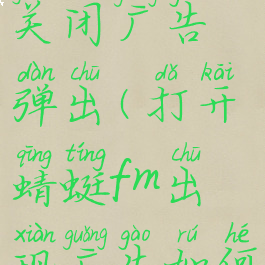 关闭广告
dàn chū dǎ kāi
弹出(打开
qīng tíng chū
蜻蜓fm出
xiàn guǎng gào rú hé
现广告如何